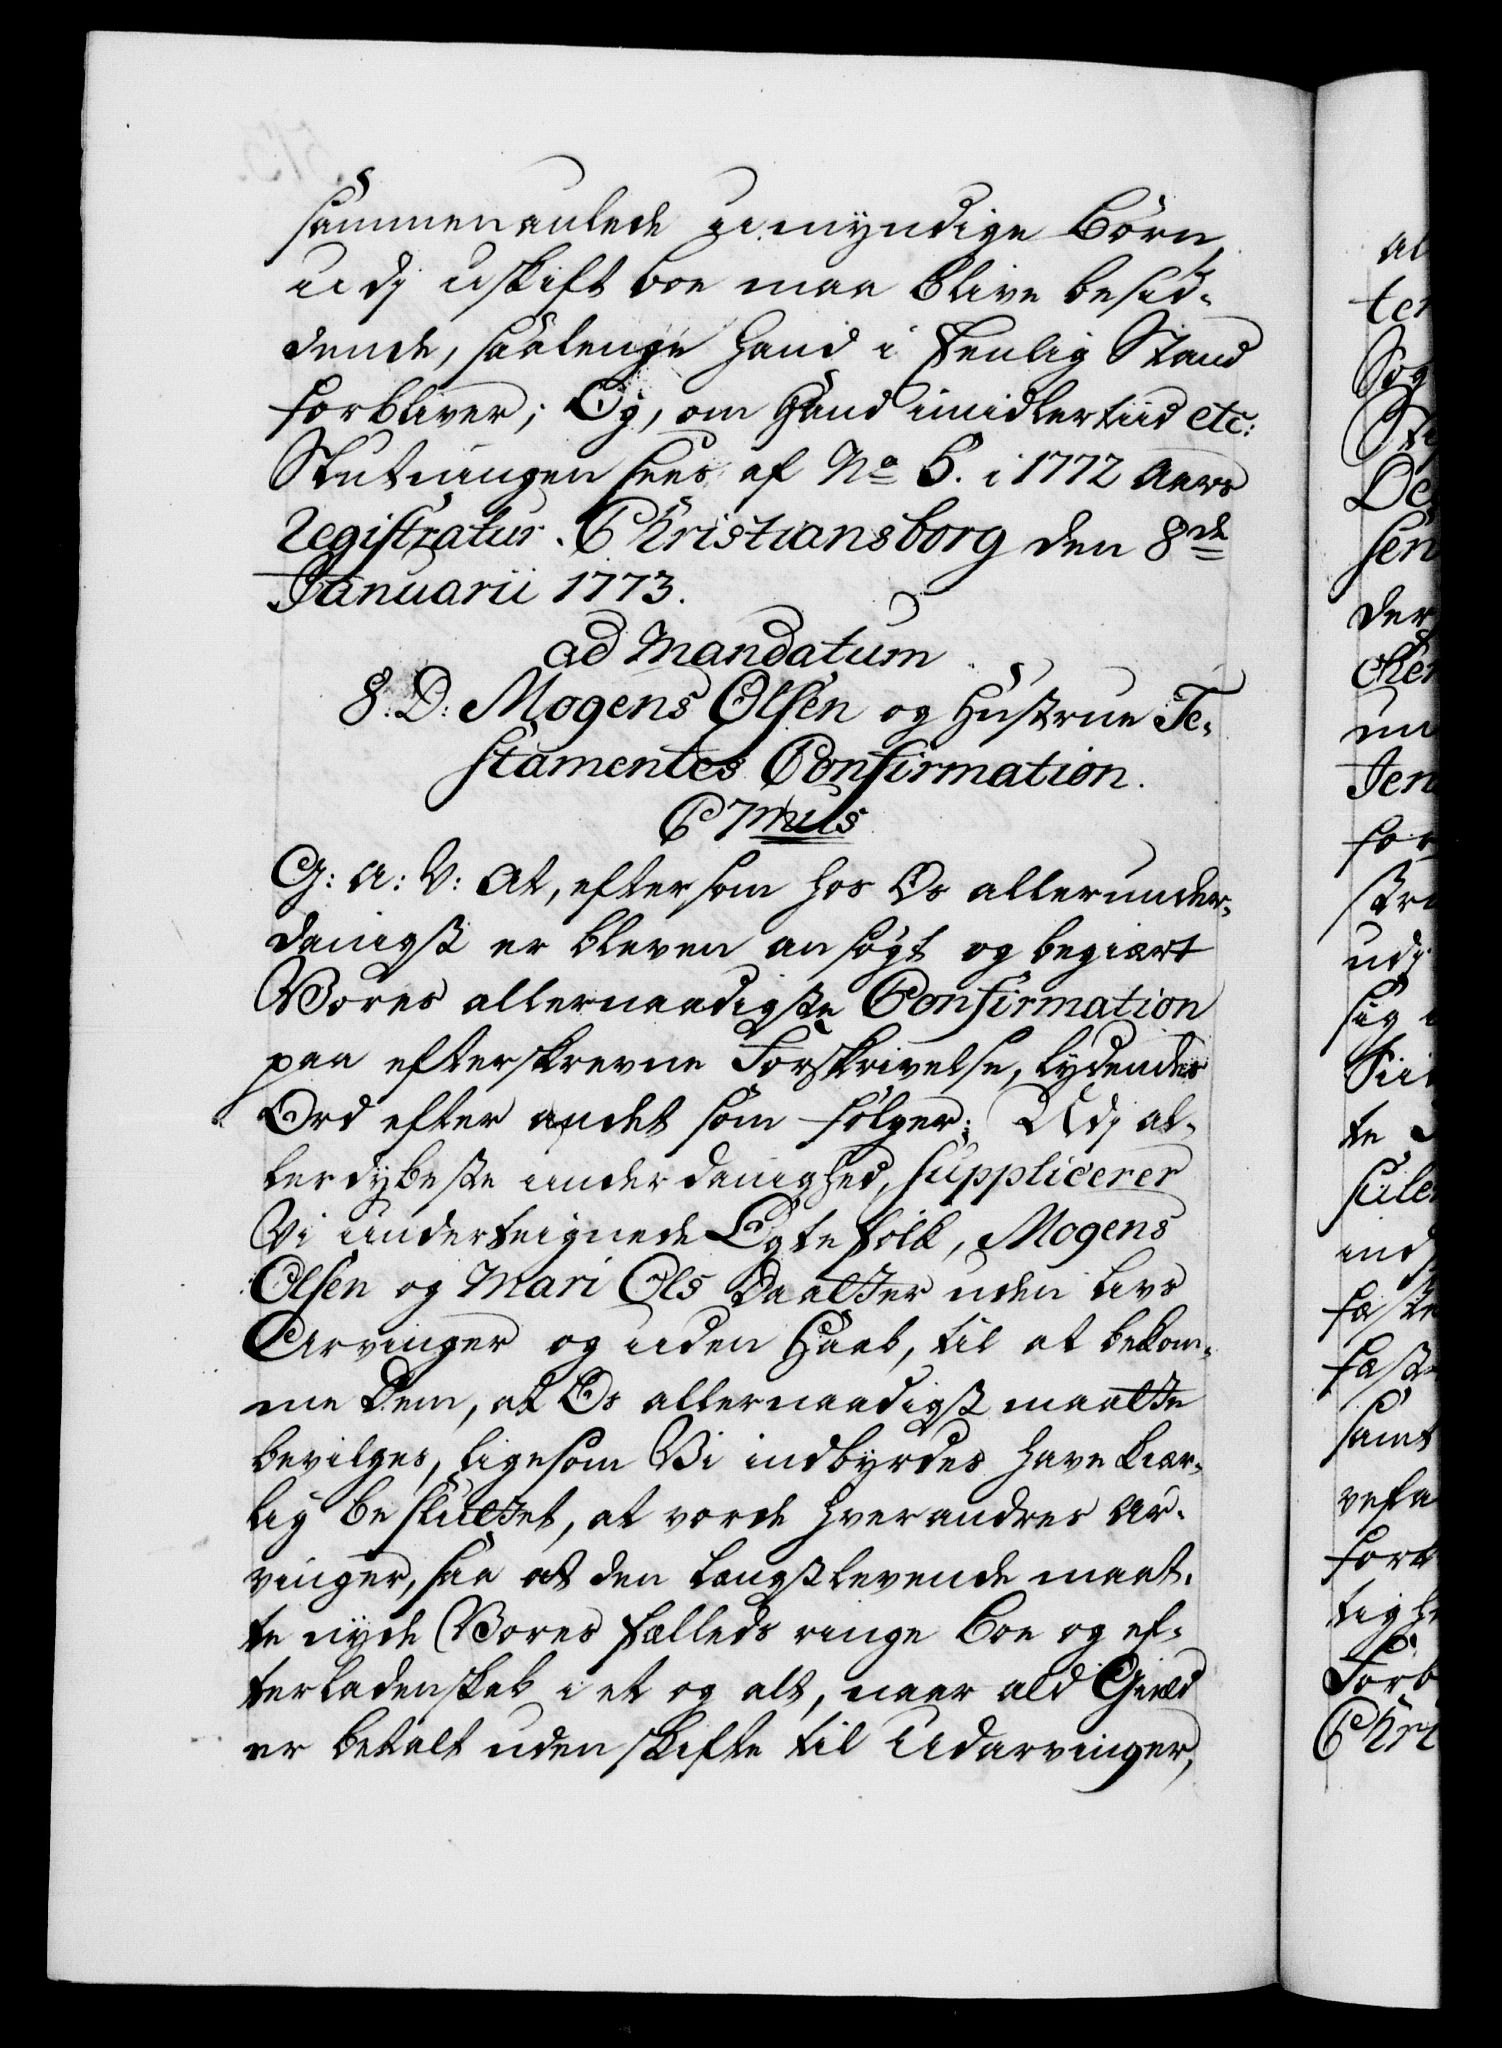 sammenavlede umyndige Børn,
udj uskift boe maa blive besid-
dende, saalenge hand i Eenlig Stand
forbliver; Og, om Hand imidlertiid etc:
Slutningen sees af No 6. i 1772 Aars
Registratur. Christiansborg den 8de
Januarii 1773.
ad Mandatum
8. D: Mogens Olsen og Hustrue Te-
stamentes Confirmation.
C 7mus
G: A: V: At, eftersom hos Os allerunder-
danigst er bleven ansøgt og begiært
Vores allernaadigste Confirmation
paa efterskrevne Forskrivelse, lydendes
Ord efter andet som følger: Udj al-
lerdybeste underdanighed, supplicerer
Vi underteignede Egtefolk, Mogens
Olsen og Mari Ols Daatter uden Livs
Arvinger og uden Haab, til at bekom-
me Dem, at Os allernaadigst maatte
bevilges, ligesom Vi indbyrdes have kiær-
lig besluttet, at vorde hverandres Ar-
vinger, saa at den Længstlevende maat-
te nyde Vores fælleds ringe Boe og ef-
terladenskab i et og alt, naar ald Gield
er betalt uden skifte til Udarvinger,